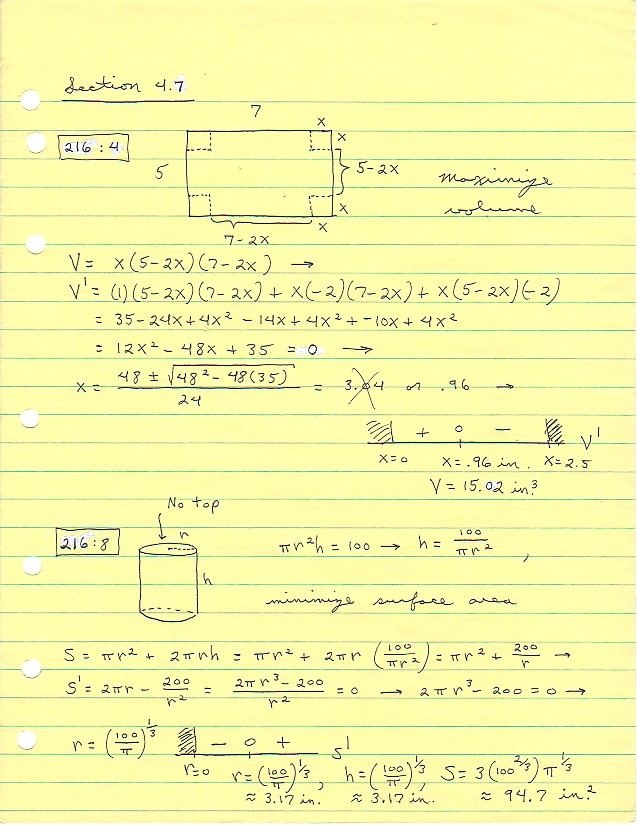 Section 4.7
216 : 4
7
x
x
5
5-2x
x
x
7-2x
maximize
volume
V = x(5-2x)(7-2x) →
V' = (1)(5-2x)(7-2x) + x(-2)(7-2x) + x(5-2x)(-2)
= 35-24x+4x² - 14x+4x² + -10x+4x²
= 12x² - 48x + 35 = 0 →
x = (48 ± √(48² - 48(35)))/24 = 3.04 or .96 →
+ 0 - V'
x=0 x=.96 in. x=2.5
V = 15.02 in.³
No top
216:8
r
h
πr²h = 100 → h = 100/(πr²),
minimize surface area
S = πr² + 2πrh = πr² + 2πr (100/(πr²)) = πr² + 200/r →
S' = 2πr - 200/r² = (2πr³ - 200)/r² = 0 → 2πr³ - 200 = 0 →
r = (100/π)^(1/3)
- 0 + S'
r=0 r=(100/π)^(1/3), h=(100/π)^(1/3), S = 3(100^(2/3))π^(1/3)
≈ 3.17 in. ≈ 3.17 in. ≈ 94.7 in.²